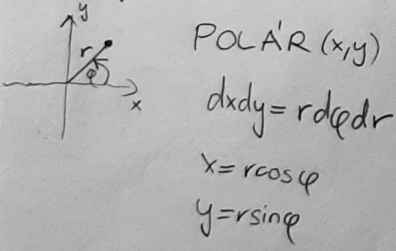 y
r
φ
x
POLÁR (x,y)
dxdy = rdφdr
x = rcosφ
y = rsinφ